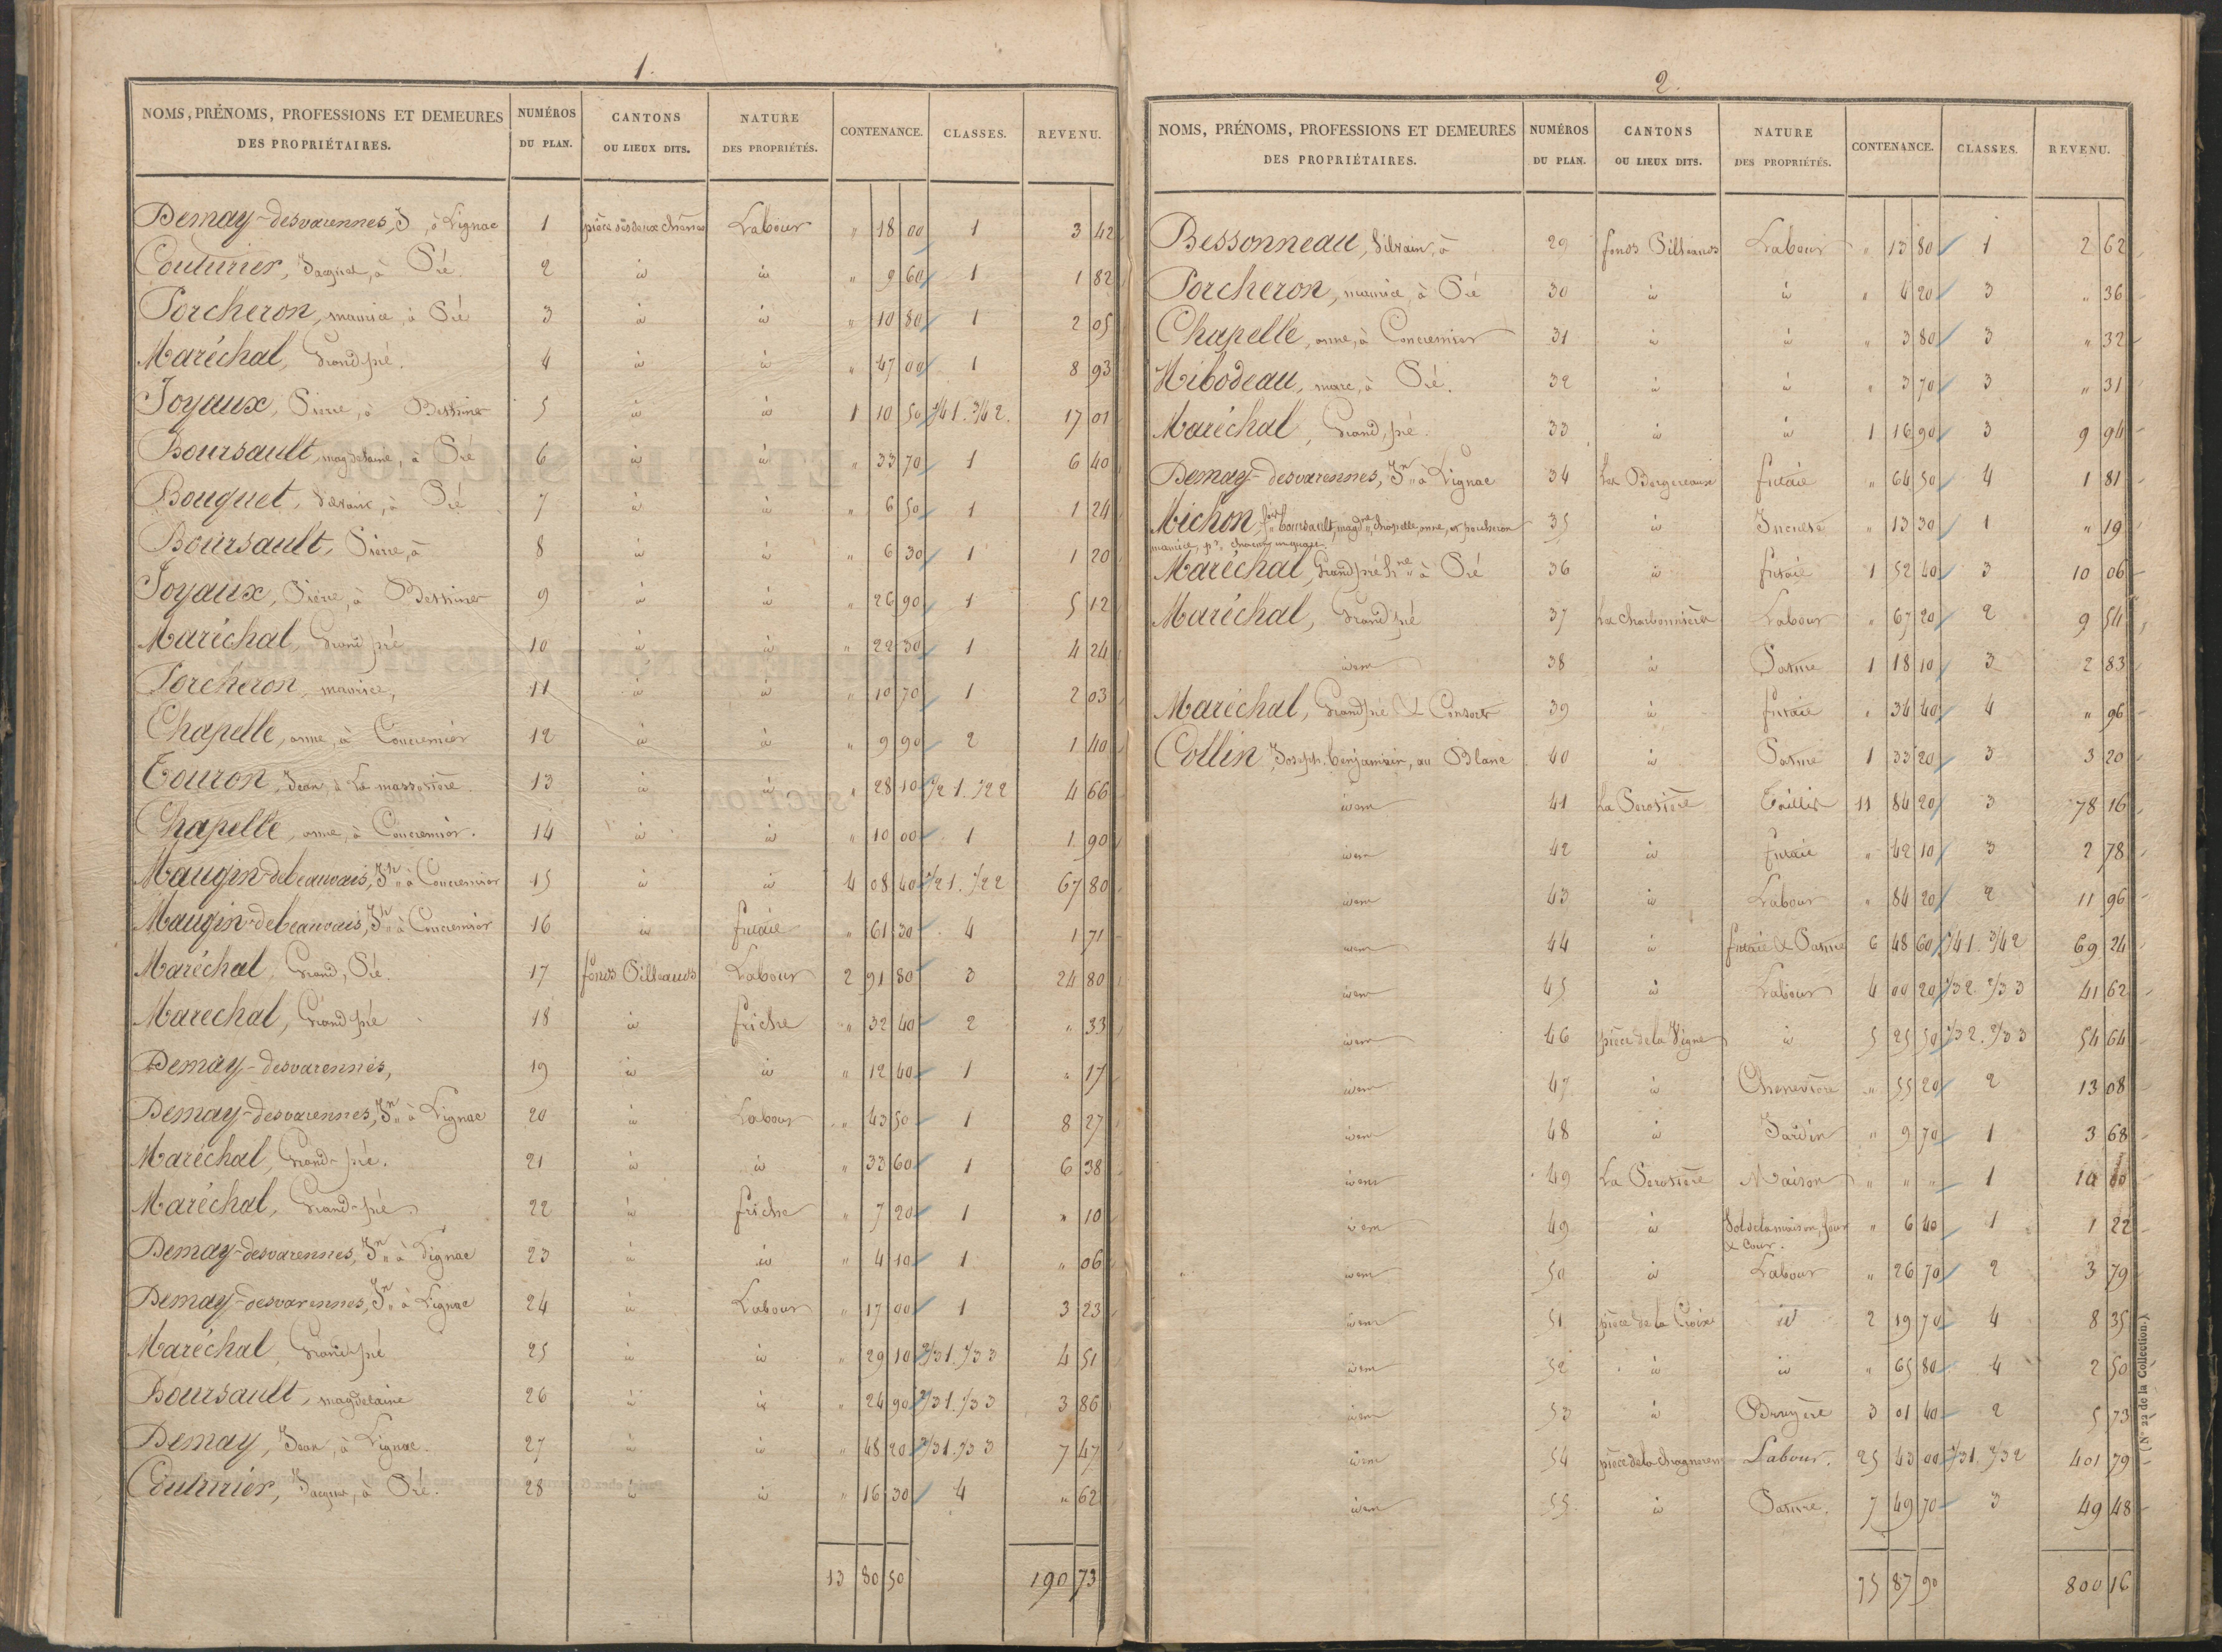 1.
NOMS, PRÉNOMS, PROFESSIONS ET DEMEURES DES PROPRIÉTAIRES. NUMÉROS DU PLAN. CANTONS OU LIEUX DITS. NATURE DES PROPRIÉTÉS. CONTENANCE. CLASSES. REVENU.
Demay-desvarennes, J, à Lignac 1 pièce des deux chênes Labour " 18 00 1 3 42
Couturier, Jacques, à Pré. 2 id id " 9 60 1 1 82
Porcheron, maurice, à Pré 3 id id " 10 80 1 2 05
Maréchal, Grand pré. 4 id id " 47 00 1 8 93
Joyaux, Pierre, à 5 id id 1 10 50 1/41. 3/42. 17 01
Boursault, magdelaine, à Pré 6 id id " 33 70 1 6 40
Bouquet, Silvain, à Pré 7 id id " 6 50 1 1 24
Boursault, Pierre, à 8 id id " 6 30 1 1 20
Joyaux, Pierre, à 9 id id " 26 90 1 5 12
Maréchal, Grand pré 10 id id " 22 30 1 4 24
Porcheron, maurice, 11 id id " 10 70 1 2 03
Chapelle, anne, à Concremier 12 id id " 9 90 2 1 40
Touron, Jean, à La 13 id id " 28 10 1/21. 1/22 4 66
Chapelle, anne, à Concremier. 14 id id " 10 00 1 1 90
Maugin-debeauvais, Jh à Concremier 15 id id 4 08 40 1/21. 1/22 67 80
Maugin-debeauvais, Jh à Concremier 16 id futaie " 61 30 4 1 71
Maréchal, Grand, Pré. 17 fonds Labour 2 91 80 3 24 80
Marechal, Grand pré 18 id friche " 32 40 2 " 33
Demay-desvarennes, 19 id id " 12 40 1 " 17
Demay-desvarennes, Jn à Lignac 20 id Labour " 43 50 1 8 27
Maréchal, Grand-pré. 21 id id " 33 60 1 6 38
Maréchal, Grand-pré 22 id friche " 7 20 1 " 10
Demay-desvarennes, Jn à Lignac 23 id id " 4 10 1 " 06
Demay-desvarennes, Jn à Lignac 24 id Labour " 17 00 1 3 23
Maréchal, Grand-pré 25 id id " 29 10 2/31. 1/33 4 51
Boursault, magdelaine 26 id id " 24 90 2/31. 1/33 3 86
Demay, Jean, à Lignac. 27 id id " 48 20 2/31. 1/33 7 47
Couturier, Jacques, à Pré. 28 id id " 16 30 4 " 62
13 80 50 190 73
2.
NOMS, PRÉNOMS, PROFESSIONS ET DEMEURES DES PROPRIÉTAIRES. NUMÉROS DU PLAN. CANTONS OU LIEUX DITS. NATURE DES PROPRIÉTÉS. CONTENANCE. CLASSES. REVENU.
Bessonneau, Silvain, à 29 fonds Labour " 13 80 1 2 62
Porcheron, maurice, à Pré 30 id id " 4 20 3 " 36
Chapelle, anne, à Concremier 31 id id " 3 80 3 " 32
Hibodeau, marc, à Pré. 32 id id " 3 70 3 " 31
Maréchal, Grand, pré. 33 id id 1 16 90 3 9 94
Demay-desvarennes, Jn à Lignac 34 Les Bergereaux futaie " 64 50 4 1 81
Michon, boursault, magdne, chapelle, anne, et porcheron 35 id Inculte " 13 30 1 " 19
maurice, pr. chacun un quart.
Maréchal, Grand pré à Pré 36 id futaie 1 52 40 3 10 06
Maréchal, Grand pré 37 La charbonnière Labour " 67 20 2 9 54
idem 38 id Patural 1 18 10 3 2 83
Maréchal, Grand pré & Consorts 39 id futaie " 34 40 4 " 96
Collin, Joseph, benjamin, au Blanc 40 id 1 33 20 3 3 20
idem 41 La Taillis 11 84 20 3 78 16
idem 42 id futaie " 42 10 3 2 78
idem 43 id Labour " 84 20 2 11 96
idem 44 id futaie & 6 48 60 1/41. 3/42 69 24
idem 45 id Labour 4 00 20 1/32. 2/33 41 62
idem 46 pièce de la Vigne id 5 25 50 1/32. 2/33 54 64
idem 47 id Chenevière " 55 20 2 13 08
idem 48 id Jardin " 9 70 1 3 68
idem 49 La Maison " " " 1 10 00
idem 49 id Sol de la maison, four " 6 40 1 1 22
& Cour.
idem 50 id Labour " 26 70 2 3 79
idem 51 pièce de la Croix id 2 19 70 4 8 35
idem 52 id id " 65 80 4 2 50
idem 53 id Bruyère 3 01 40 2 5 73
idem 54 pièce de la Labour. 25 43 00 1/31. 2/32 401 79
idem 55 id 7 49 70 3 49 48
75 87 90 800 16
(N° 22 de la Collection.)